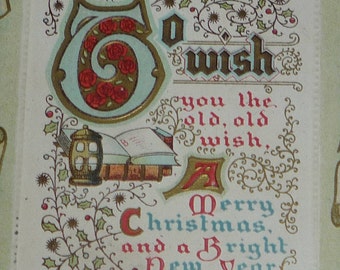 To wish
you the
old, old
wish,
A
Merry
Christmas,
and a Bright
New Year